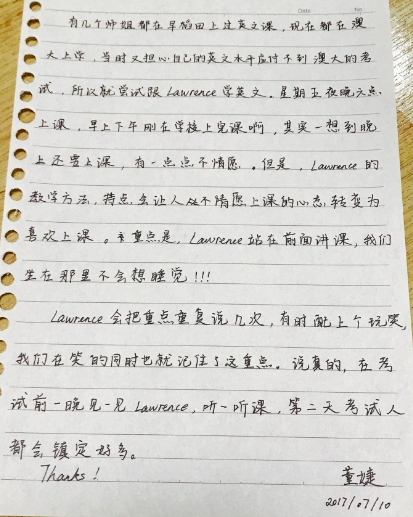 Date No
有几个师姐都在早稻田上过英文课，现在都在澳
大上学，当时又担心自己的英文水平应付不到澳大的考
试，所以就尝试跟Lawrence学英文。星期五夜晚六点
上课，早上下午刚在学校上完课啊，其实一想到晚
上还要上课，有一点点不情愿。但是，Lawrence的
教学方法，特点会让人从不情愿上课的心态转变为
喜欢上课。重点是，Lawrence站在前面讲课，我们
坐在那里不会想睡觉!!!
Lawrence会把重点重复说几次，有时配上个玩笑，
我们在笑的同时也就记住了这重点。说真的，在考
试前一晚见一见Lawrence，听一听课，第二天考试人
都会镇定好多。
Thanks!
董婕
2017/07/10